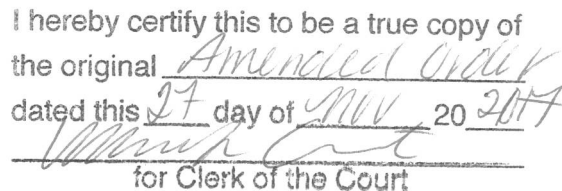 I hereby certify this to be a true copy of
the original Amended Order
dated this 27 day of Nov 20 2017
for Clerk of the Court